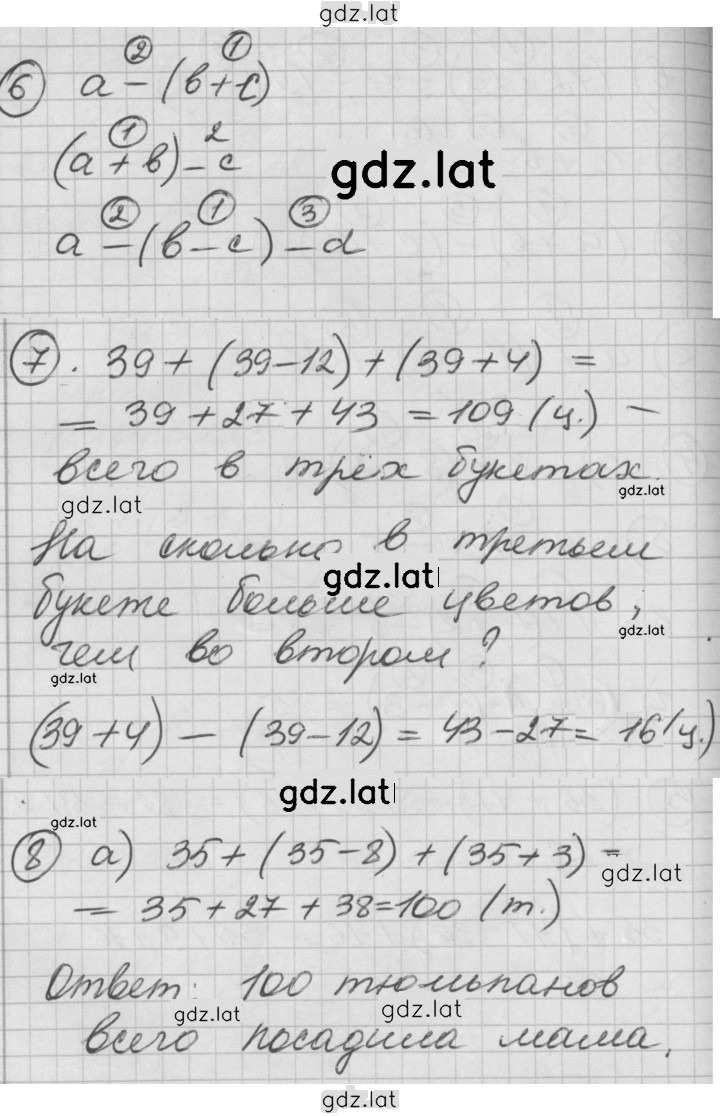 gdz.lat
② ①
⑥ a - (в + c)
① 2
(a + в) - c
gdz.lat
② ① ③
a - (в - c) - d
⑦. 39 + (39 - 12) + (39 + 4) =
= 39 + 27 + 43 = 109 (ц.) -
всего в трёх букетах.
gdz.lat gdz.lat
На сколько в третьем
gdz.lat
букете больше цветов,
gdz.lat
чем во втором?
gdz.lat
(39 + 4) - (39 - 12) = 43 - 27 = 16 (ц.)
gdz.lat
gdz.lat
⑧ а) 35 + (35 - 8) + (35 + 3) =
gdz.lat
= 35 + 27 + 38 = 100 (т.)
Ответ: 100 тюльпанов
gdz.lat gdz.lat
всего посадила мама.
gdz.lat